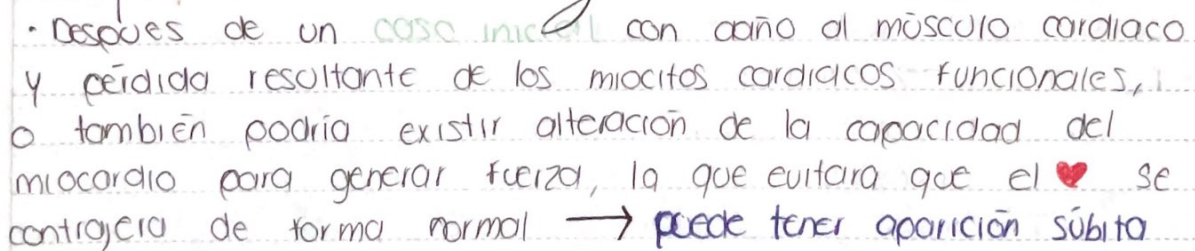 · Después de un caso inicial con daño al músculo cardiaco
y pérdida resultante de los miocitos cardiacos funcionales,
o también podría existir alteración de la capacidad del
miocardio para generar fuerza, la que evitara que el ❤ se
contrajera de forma normal → puede tener aparición súbita